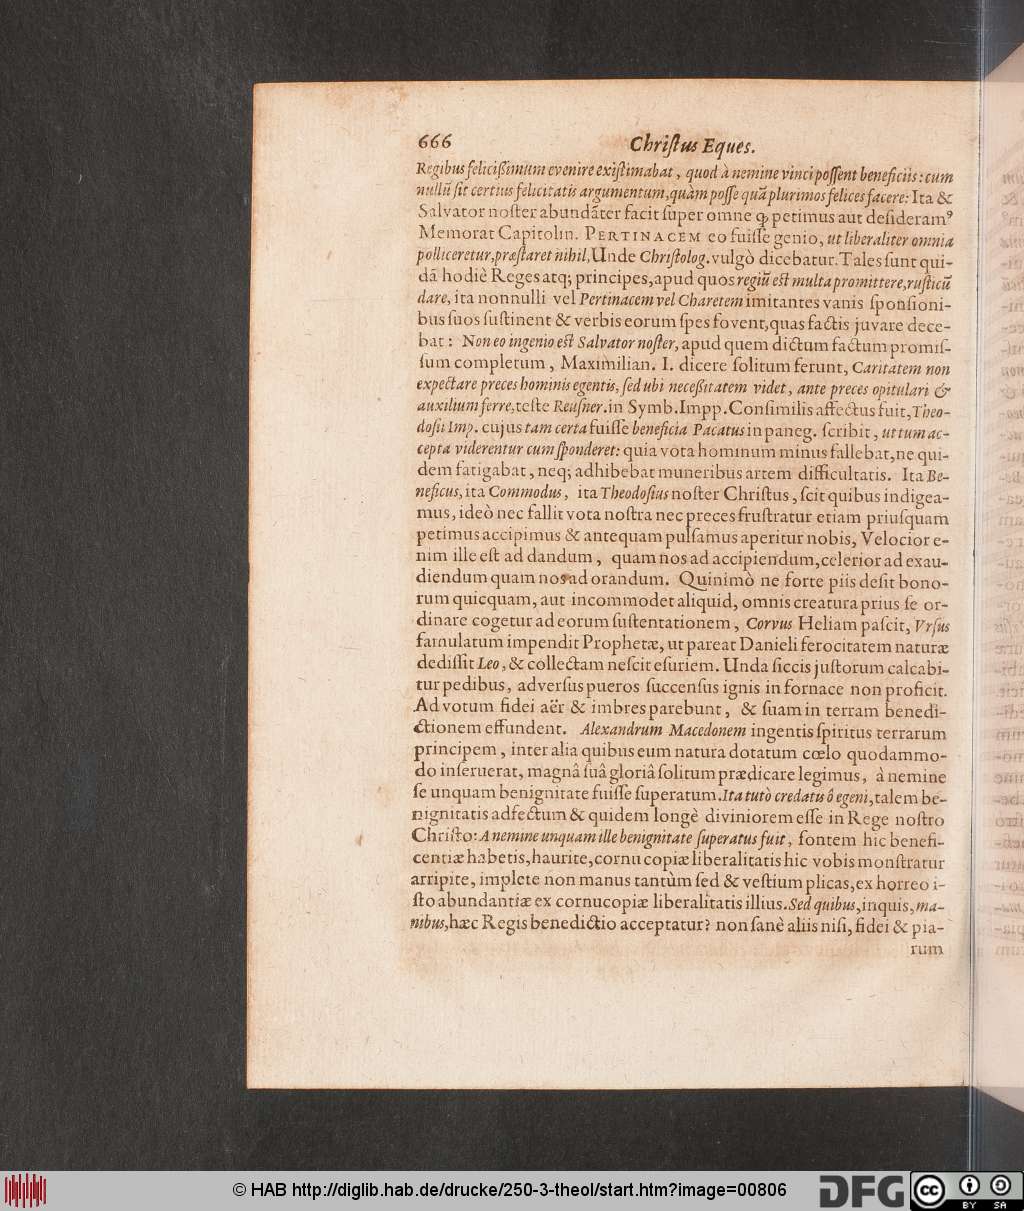 666 Chriſtus Eques.
Regibus feliciſſimum evenire exiſtimabat, quod à nemine vinci poſſent beneficiis: cum
nullũ ſit certius felicitatis argumentum, quàm poſſe quã plurimos felices facere: Ita &
Salvator noſter abundãter facit ſuper omne ꝙ petimus aut deſideram⁹
Memorat Capitolin. PERTINACEM eo fuiſſe genio, ut liberaliter omnia
polliceretur, præſtaret nihil, Unde Chriſtolog. vulgò dicebatur. Tales ſunt qui-
dã hodiè Reges atq; principes, apud quos regiũ eſt multa promittere, ruſticũ
dare, ita nonnulli vel Pertinacem vel Charetem imitantes vanis ſponſioni-
bus ſuos ſuſtinent & verbis eorum ſpes fovent, quas factis juvare dece-
bat: Non eo ingenio eſt Salvator noſter, apud quem dictum factum promiſ-
ſum completum, Maximilian. I. dicere ſolitum ferunt, Caritatem non
expectare preces hominis egentis, ſed ubi neceſſitatem videt, ante preces opitulari &
auxilium ferre, teſte Reuſner. in Symb. Impp. Conſimilis affectus fuit, Theo-
doſii Imp. cujus tam certa fuiſſe beneficia Pacatus in paneg. ſcribit, ut tum ac-
cepta viderentur cum ſponderet: quia vota hominum minus fallebat, ne qui-
dem fatigabat, neq; adhibebat muneribus artem difficultatis. Ita Be-
neficus, ita Commodus, ita Theodoſius noſter Chriſtus, ſcit quibus indigea-
mus, ideò nec fallit vota noſtra nec preces fruſtratur etiam priuſquam
petimus accipimus & antequam pulſamus aperitur nobis, Velocior e-
nim ille eſt ad dandum, quam nos ad accipiendum, celerior ad exau-
diendum quam nos ad orandum. Quinimò ne forte piis deſit bono-
rum quicquam, aut incommodet aliquid, omnis creatura prius ſe or-
dinare cogetur ad eorum ſuſtentationem, Corvus Heliam paſcit, Vrſus
famulatum impendit Prophetæ, ut pareat Danieli ferocitatem naturæ
dediſſit Leo, & collectam neſcit eſuriem. Unda ſiccis juſtorum calcabi-
tur pedibus, adverſus pueros ſuccenſus ignis in fornace non proficit.
Ad votum fidei aër & imbres parebunt, & ſuam in terram benedi-
ctionem effundent. Alexandrum Macedonem ingentis ſpiritus terrarum
principem, inter alia quibus eum natura dotatum cœlo quodammo-
do inſeruerat, magnâ ſuâ gloriâ ſolitum prædicare legimus, à nemine
ſe unquam benignitate fuiſſe ſuperatum. Ita tutò credatis ô egeni, talem be-
nignitatis adfectum & quidem longè diviniorem eſſe in Rege noſtro
Chriſto: A nemine unquam ille benignitate ſuperatus fuit, fontem hic benefi-
centiæ habetis, haurite, cornu copiæ liberalitatis hic vobis monſtratur
arripite, implete non manus tantùm ſed & veſtium plicas, ex horreo i-
ſto abundantiæ ex cornucopiæ liberalitatis illius. Sed quibus, inquis, ma-
nibus, hæc Regis benedictio acceptatur? non ſanè aliis niſi, fidei & pia-
rum
© HAB http://diglib.hab.de/drucke/250-3-theol/start.htm?image=00806
DFG
CC BY SA